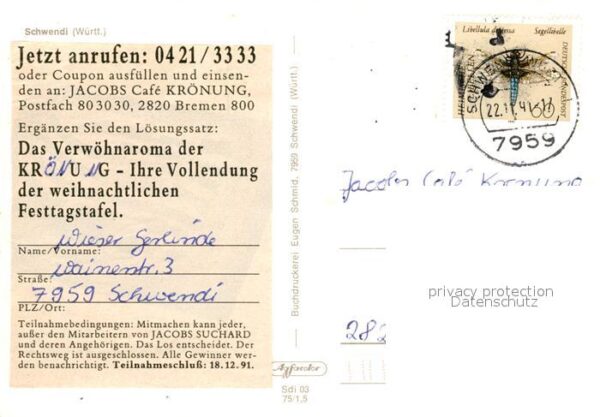 Schwendi (Württ.)
Jetzt anrufen: 04 21 / 33 33
oder Coupon ausfüllen und einsen-
den an: JACOBS Café KRÖNUNG,
Postfach 80 30 30, 2820 Bremen 800
Ergänzen Sie den Lösungssatz:
Das Verwöhnaroma der
KRÖNUNG – Ihre Vollendung
der weihnachtlichen
Festtagstafel.
Wieser Gerlinde
Name/Vorname:
Wainerstr. 3
Straße:
7959 Schwendi
PLZ/Ort:
Teilnahmebedingungen: Mitmachen kann jeder,
außer den Mitarbeitern von JACOBS SUCHARD
und deren Angehörigen. Das Los entscheidet. Der
Rechtsweg ist ausgeschlossen. Alle Gewinner wer-
den benachrichtigt. Teilnahmeschluß: 18.12.91.
Buchdruckerei Eugen Schmid, 7959 Schwendi (Württ.)
Agfacolor
Sdi 03
75/1,5
Libellula depressa Segellibelle
DEUTSCHE BUNDESPOST
60
SCHWENDI
22.11.91-17
7959
Jacobs Café Krönung
privacy protection
Datenschutz
282